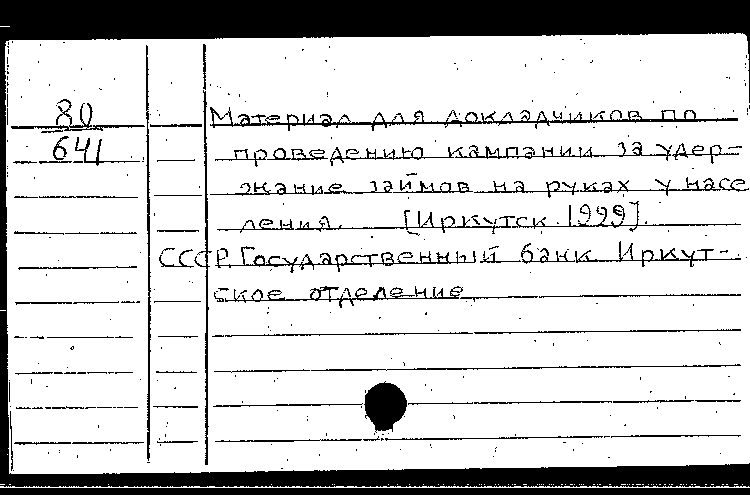 80
641
Материал для докладчиков по
проведению кампании за удер-
жание займов на руках у насе
ления. [Иркутск. 1929].
СССР. Государственный банк Иркут-
ское отделение